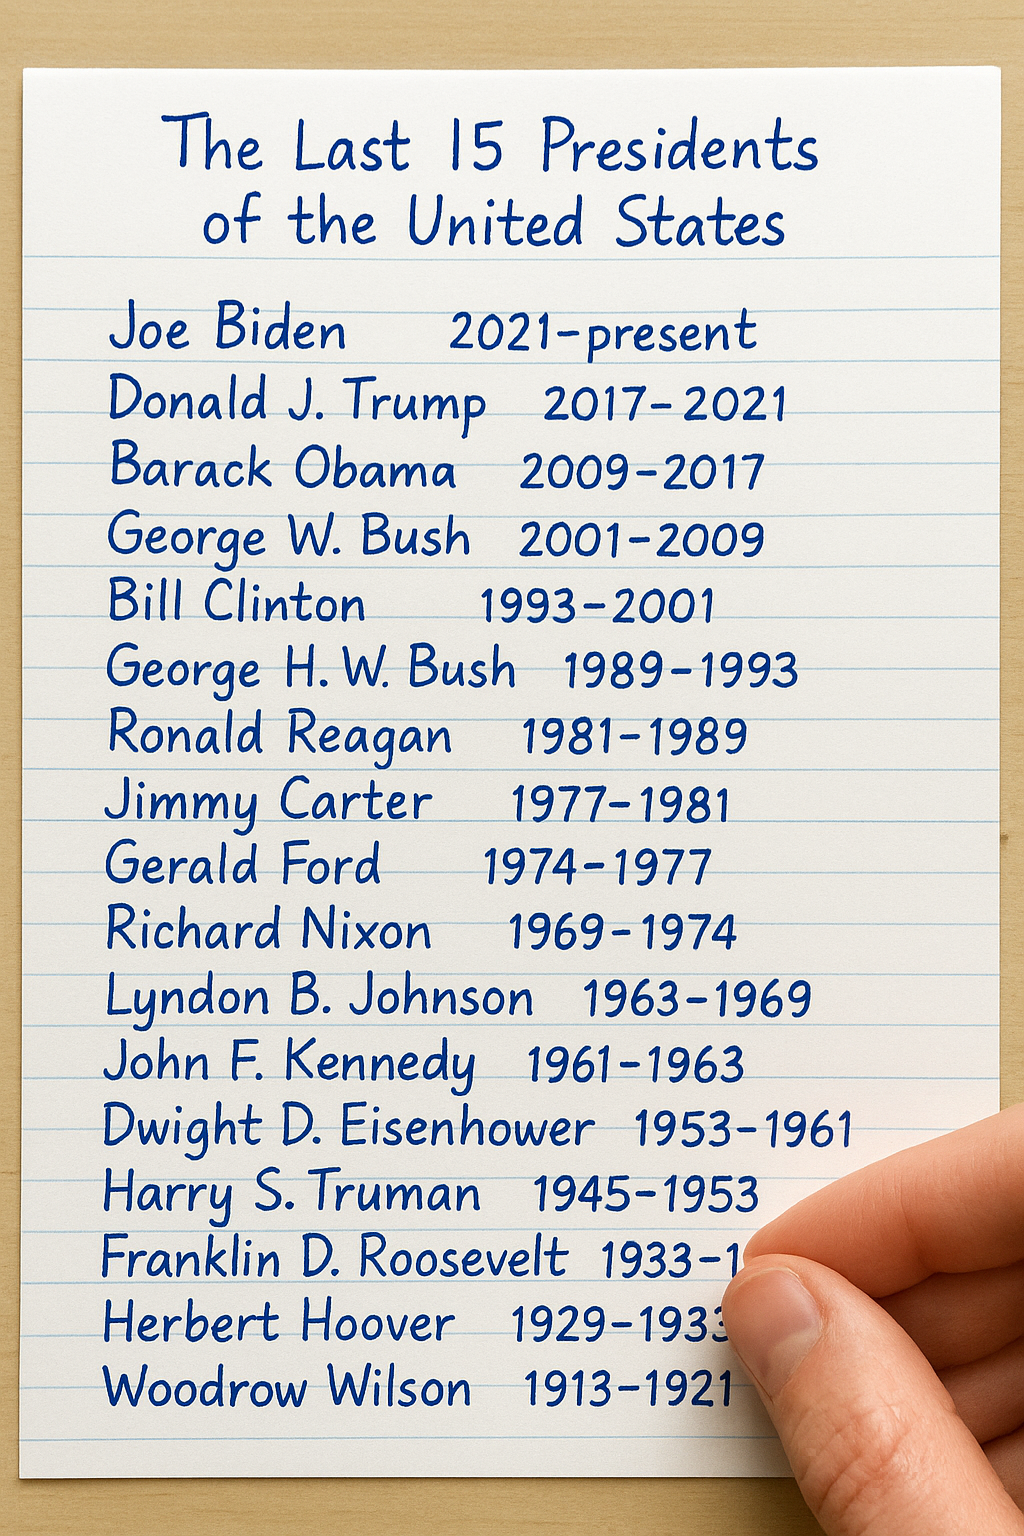 The Last 15 Presidents
of the United States
Joe Biden 2021–present
Donald J. Trump 2017–2021
Barack Obama 2009–2017
George W. Bush 2001–2009
Bill Clinton 1993–2001
George H. W. Bush 1989–1993
Ronald Reagan 1981–1989
Jimmy Carter 1977–1981
Gerald Ford 1974–1977
Richard Nixon 1969–1974
Lyndon B. Johnson 1963–1969
John F. Kennedy 1961–1963
Dwight D. Eisenhower 1953–1961
Harry S. Truman 1945–1953
Franklin D. Roosevelt 1933–1
Herbert Hoover 1929–1933
Woodrow Wilson 1913–1921